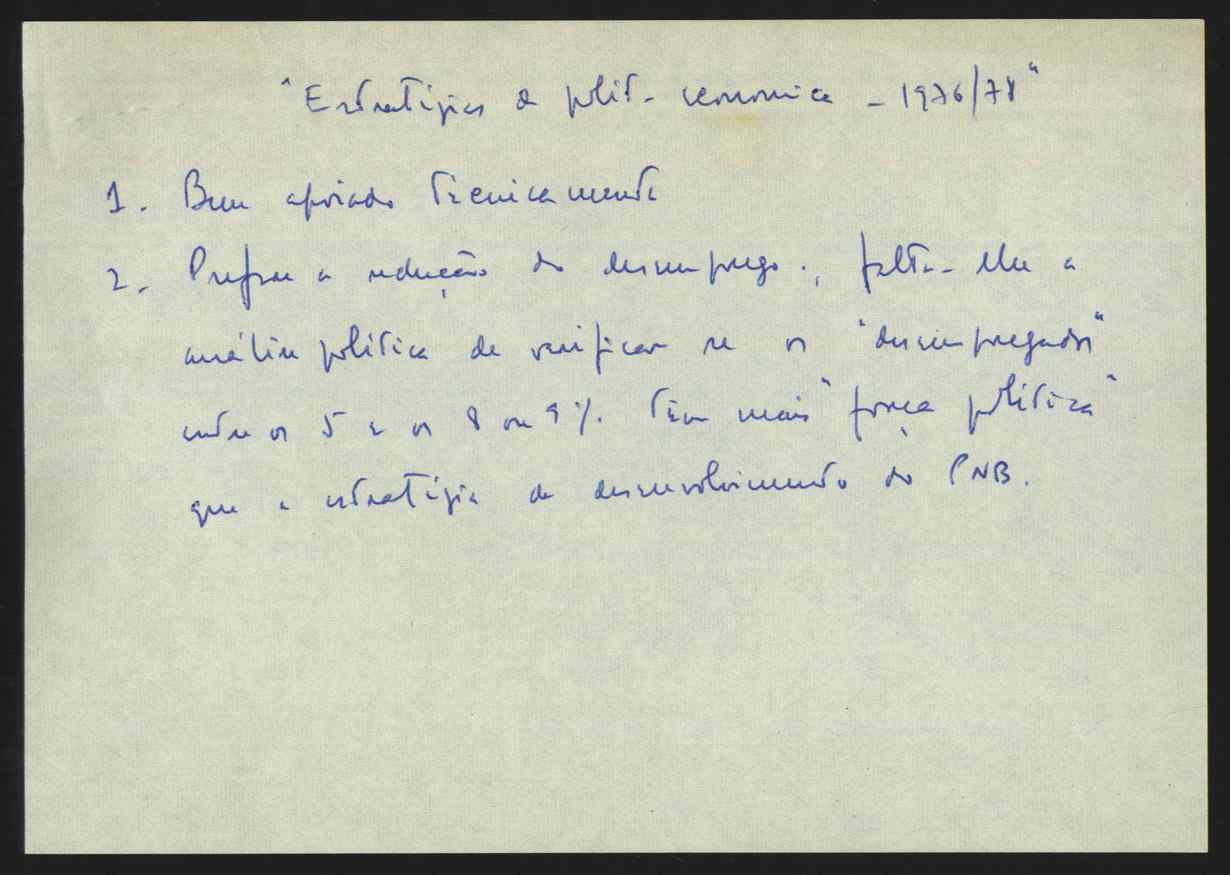 "Estratégias de polít. económica - 1976/78"
1. Bem apoiado tecnicamente
2. Prefere a redução do desemprego; falta-lhe a
análise política de verificar se os "desempregados"
entre os 5 e os 8 ou 9%. têm mais "força política"
que a estratégia de desenvolvimento do PNB.